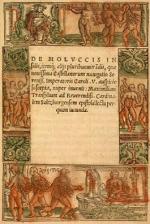 DE MOLVCCIS IN
sulis, itemq; alijs pluribus mirādis, quæ
nouissima Castellanorum nauigatio Se
renissi. Imperatoris Caroli. V. auspicio
suscepta, nuper inuenit: Maximiliani
Transyluani ad Reuerendiss. Cardina
lem Saltzburgensem epistola lectu per
quam iucunda.